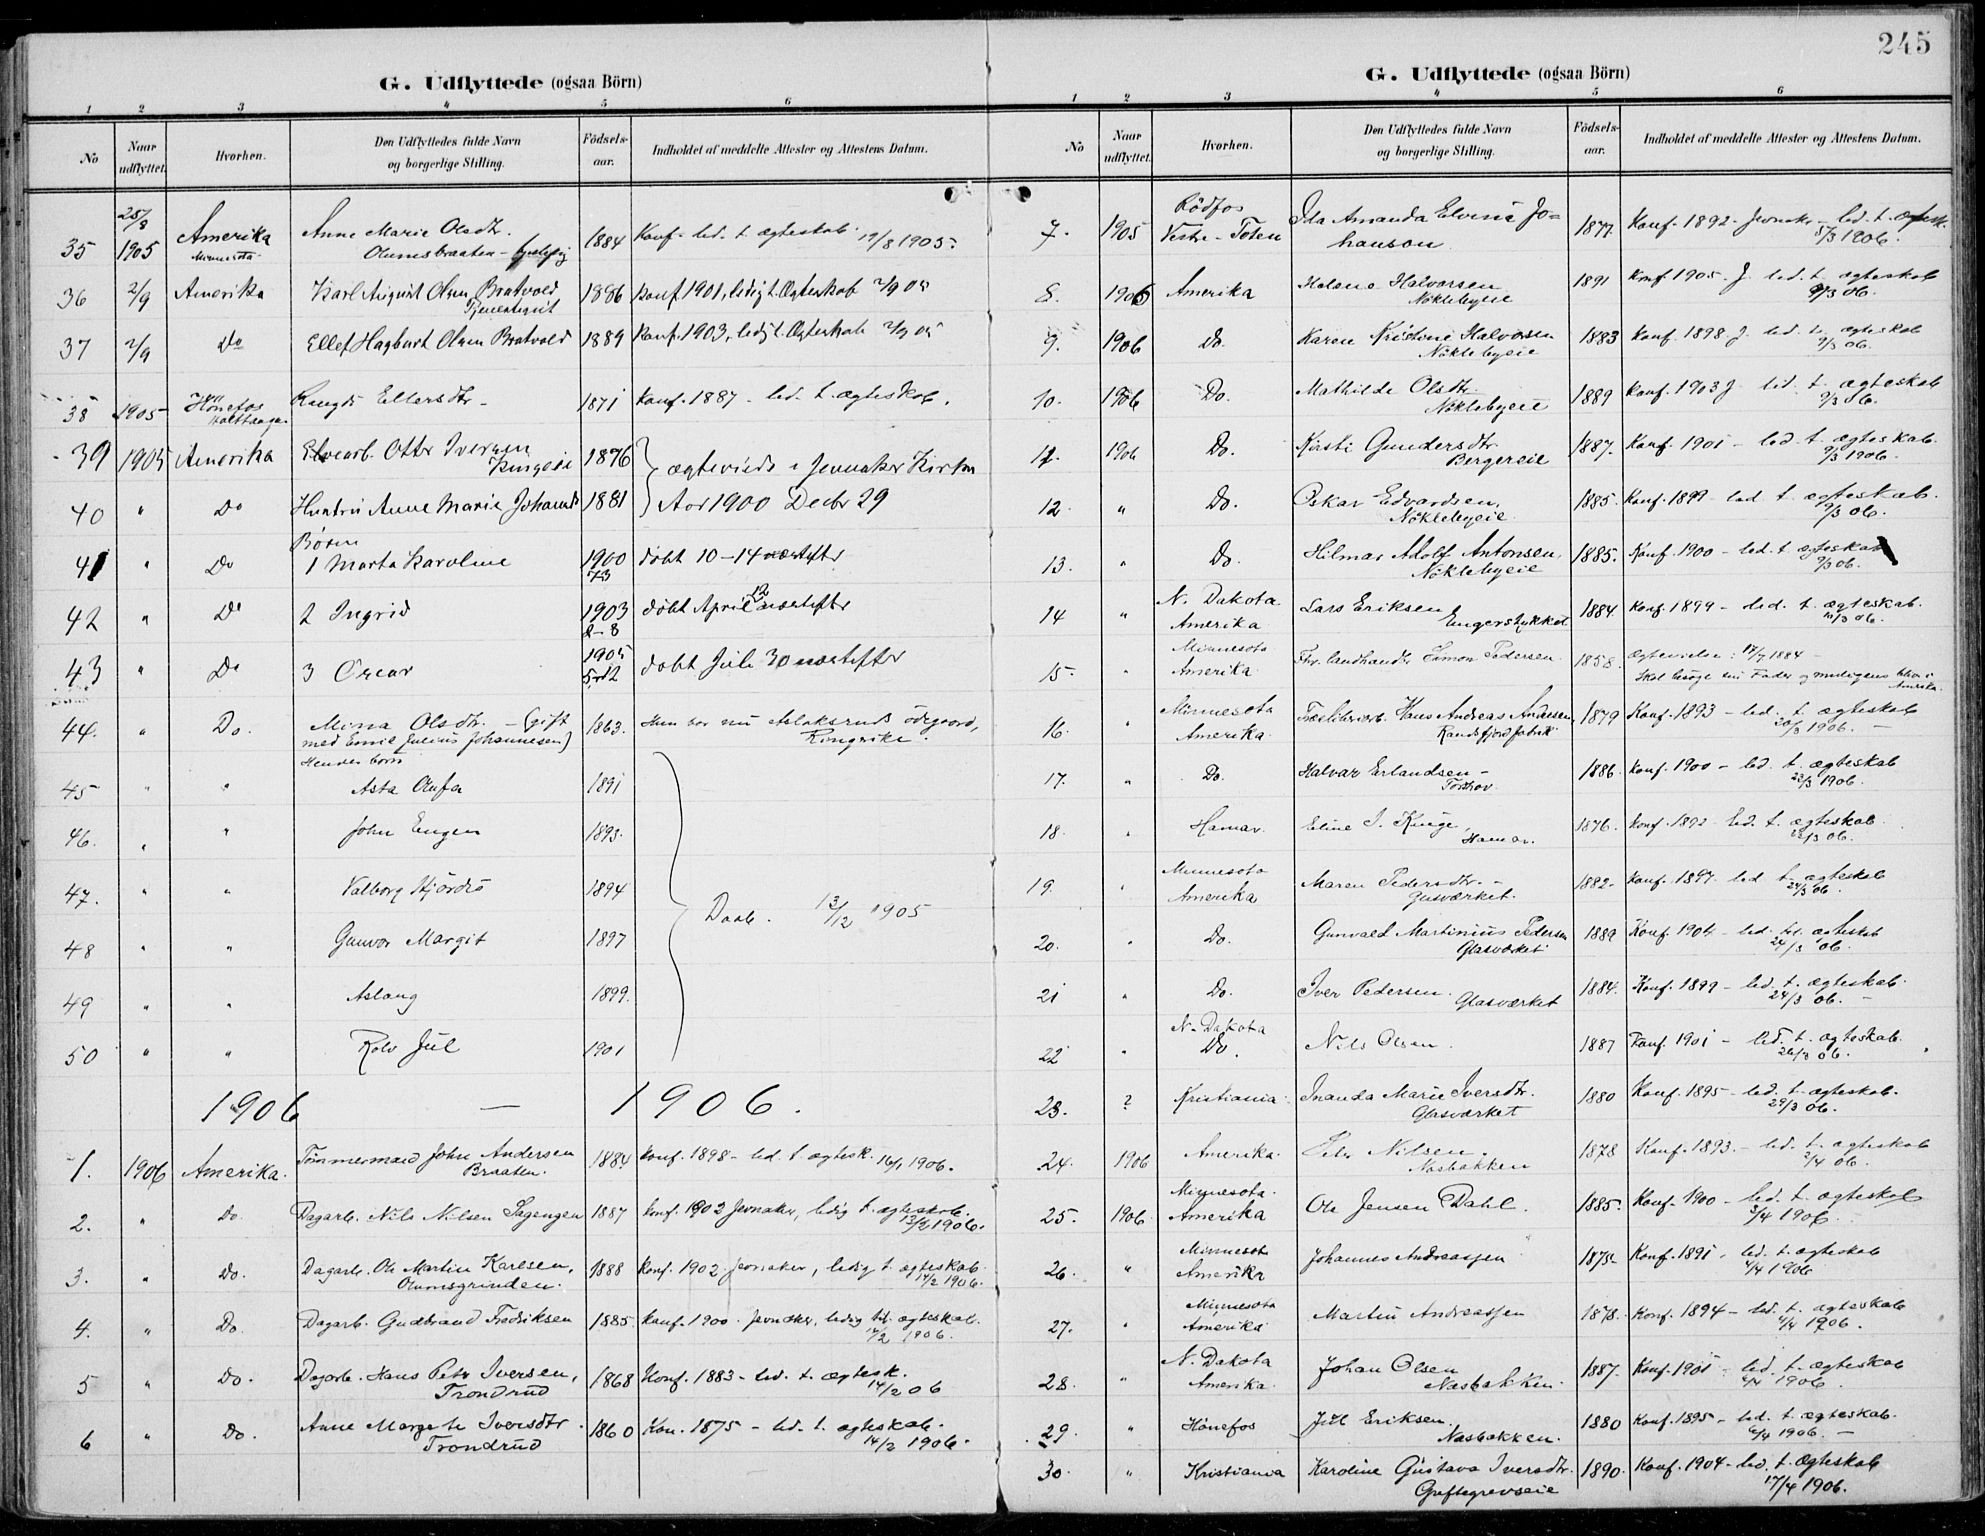 245
G. Udflyttede (ogsaa Börn)
1 2 3 4 5 6
No
Naar udflyttet.
Hvorhen.
Den Udflyttedes fulde Navn og borgerlige Stilling.
Födsels-aar.
Indholdet af meddelte Attester og Attestens Datum.
35 25/8 1905 Amerika Anne Marie Olsdtr. 1884 Konf. led. t. ægteskab. 19/8 1905.
Minnesota Olumsbraaten
36 2/9 Amerika Karl August Olsen Bratvold 1886 konf 1901, ledig t. Ægteskab 2/9 05
37 2/9 Do Ellef Hagbart Olsen Bratvold 1889 konf. 1903, ledig t. Ægteskab 2/9 05
38 1905 Hönefos Ellersdtr. 1871 konf. 1887 - led. t. ægteskab.
39 1905 Amerika Otto Iversen 1876 ægteviede i Jevnaker Kirke
40 " Do Hustru Anne Marie Johansd 1881 Aar 1900 Decbr 29
Börn
41 " Do 1 Marta Karoline 1900 döbt 10-14 næstefter
42 " Do 2 Ingrid 1903 döbt April 12 næstefter
43 " Do 3 Oscar 1905 döbt Juli 30 næstefter
44. " Do. Mina Olsdtr. - (gift 1863. Hun bor nu Aslaksruds ödegaard,
med Emil Julius Johannesen) Ringrike.
Hendes börn
45 " " Asta Olufa 1891
46. " " John Eugen 1893.
47. " " Valborg Hjördis 1894
Daab. 13/12 1905
48 " " Gunvor Margit 1897
49 " " Aslaug 1899.
50 " " Rolv Jul 1901
1906 — 1906.
1. 1906 Amerika. Tömmermand John Andersen 1884 konf. 1898 - led. t. ægtesk. 16/1 1906.
Braaten.
2. " Do Dagarb. Nils Nilsen Sagengen 1887 konf. 1902 Jevnaker, ledig t. ægteskab. 13/2 1906.
3. " Do. Dagarb. Ole Martin Karlsen, 1888 konf. 1902 Jevnaker, ledig t. ægteskab. 14/2 1906.
Olumsgrinden.
4. " Do. Dagarb. Gudbrand Fredriksen 1885. konf. 1900. Jevnaker, ledig til ægteskab. 14/2 1906.
5 " Do. Dagarb. Hans Peter Iversen, 1868 Konf. 1883 - led. t. ægtesk. 14/2 06
Trondrud
6 " Do. Anne Margrete Iversdtr. 1860 Kon. 1875 - led. t. ægteskab. 14/2 1906.
Trondrud
G. Udflyttede (ogsaa Börn)
1 2 3 4 5 6
No
Naar udflyttet.
Hvorhen.
Den Udflyttedes fulde Navn og borgerlige Stilling.
Födsels-aar.
Indholdet af meddelte Attester og Attestens Datum.
7. 1905 Rödfos Vestre-Toten Ida Amanda Elvina Johanson 1877. Konf. 1892 - Jevnaker - led. t. ægtesk. 5/3 1906.
8. 1906 Amerika Helene Halvorsen 1891 Konf. 1905. J. led. t. ægteskab 9/3 06.
Nöklebyeie
9. 1906 Do. Karen Kristine Halvorsen 1883 konf. 1898 J. led. t. ægteskab 9/3 06.
Nöklebyeie
10. 1906 Do. Mathilde Olsdtr. 1889 konf. 1903 J. led. t. ægteskab 9/3 06.
Nöklebyeie
11. 1906 Do. Kirsti Gundersdtr 1887. Konf. 1901 - led. t. ægteskab. 9/3 1906.
Bergereie
12. " Do. Oskar Edvardsen, 1885. Konf. 1899 - led. t. ægteskab. 9/3 06.
Nöklebyeie.
13. " Do. Hilmar Adolf Antonsen, 1885. Konf. 1900 - led. t. ægteskab 9/3 06.
Nöklebyeie
14 " N. Dakota Amerika Lars Eriksen 1884. Konf. 1899 - led. t. ægteskab.
Engerstykket
15. " Minnesota Amerika Fhv. landhandlr. Simon Pedersen. 1858. Ægtevielse: 1884 -
Skal besöge sin Fader og muligens blive i Amerika.
16. " Minnesota Amerika Hans Andreas Andresen, 1879 Konf. 1893 - led. t. ægteskab 20/3 1906. -
Randsfjord fabrik
17. " Do. Halvor Erlandsen - 1886. konf. 1900 - led. t. ægteskab 23/3 1906.
18. " Hamar. Eline I. Kinge, 1876. konf. 1892 - led. t. ægteskab.
Hamar.
19. " Minnesota Amerika Maren Pedersdtr. - 1882. konf. 1897. led. t. ægteskab 24/3 06.
Glasværket.
20. " Do. Gunvald Martinius Pedersen 1889 Konf. 1904 - led. til ægteskab 24/3 06.
Glasværket
21 " Do. Iver Pedersen. 1884. Konf. 1899 - led. t. ægteskab. 24/3 06. -
Glasværket
22 " N. Dakota Do. Nils Olsen. 1887 Konf. 1901 - led. t. ægteskab. 26/3 06.
23. ? Kristiania Inanda Marie Iversdtr. 1880 Konf. 1895 - led. t. ægteskab. 29/3 06.
Glasværket
24. 1906 Amerika. Peder Nilsen. 1878 Konf. 1893. - led. t. ægteskab 2/4 06.
Næsbakken
25. 1906 Minnesota. Amerika Ole Jensen Dahl. 1885. Konf. 1900 - led. t. ægteskab 3/4 1906.
26. " Minnesota Amerika Johannes Andreassen 1875. Konf. 1891. led. t. ægteskab 4/4 1906
27. " Minnesota Amerika Martin Andreassen 1878. Konf. 1894 - led. t. ægteskab 4/4 1906.
28. " N. Dakota Amerika. Johan Olsen 1887. Konf. 1901 - led. t. ægteskab 6/4 1906.
Næsbakken.
29. " Hönefos Eriksen. 1880 Konf. 1895 - led. t. ægteskab. 6/4 1906. -
Næsbakken.
30. " Kristiania Karoline Gustava Iversdtr. 1890. Konf. 1904 - led. t. Ægteskab 17/4 1906.